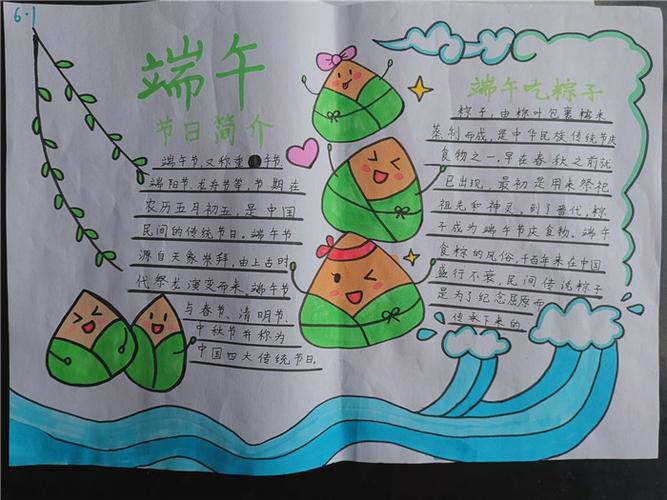 6.1
端午
节日简介
端午节,又称重 午节
端阳节、龙舟节等,节期在
农历五月初五,是中国
民间的传统节日。端午节
源自天象崇拜,由上古时
代祭龙演变而来。端午节
与春节、清明节、
中秋节并称为
中国四大传统节日
端午吃粽子
粽子,由粽叶包裹糯米
蒸制而成,是中华民族传统节庆
食物之一,早在春秋之前就
已出现,最初是用来祭祀
祖先和神灵,到了晋代,粽
子成为端午节庆食物。端午
食粽的风俗,千百年来在中国
盛行不衰,民间传说粽子
是为了纪念屈原而
传承下来的